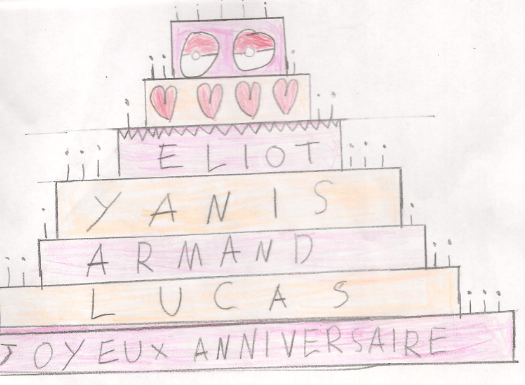 ELIOT
YANIS
ARMAND
LUCAS
JOYEUX ANNIVERSAIRE